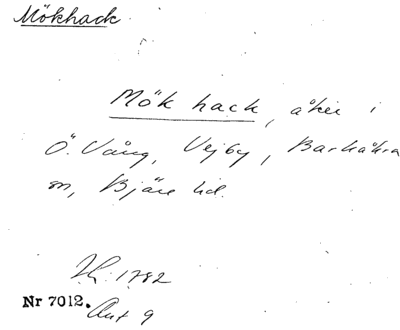 Mökhack
Mök hack, åker i
Ö. Vång, Vejby, Barkåkra
sn, Bjäre hd.
1782
Nr 7012. Akt 9